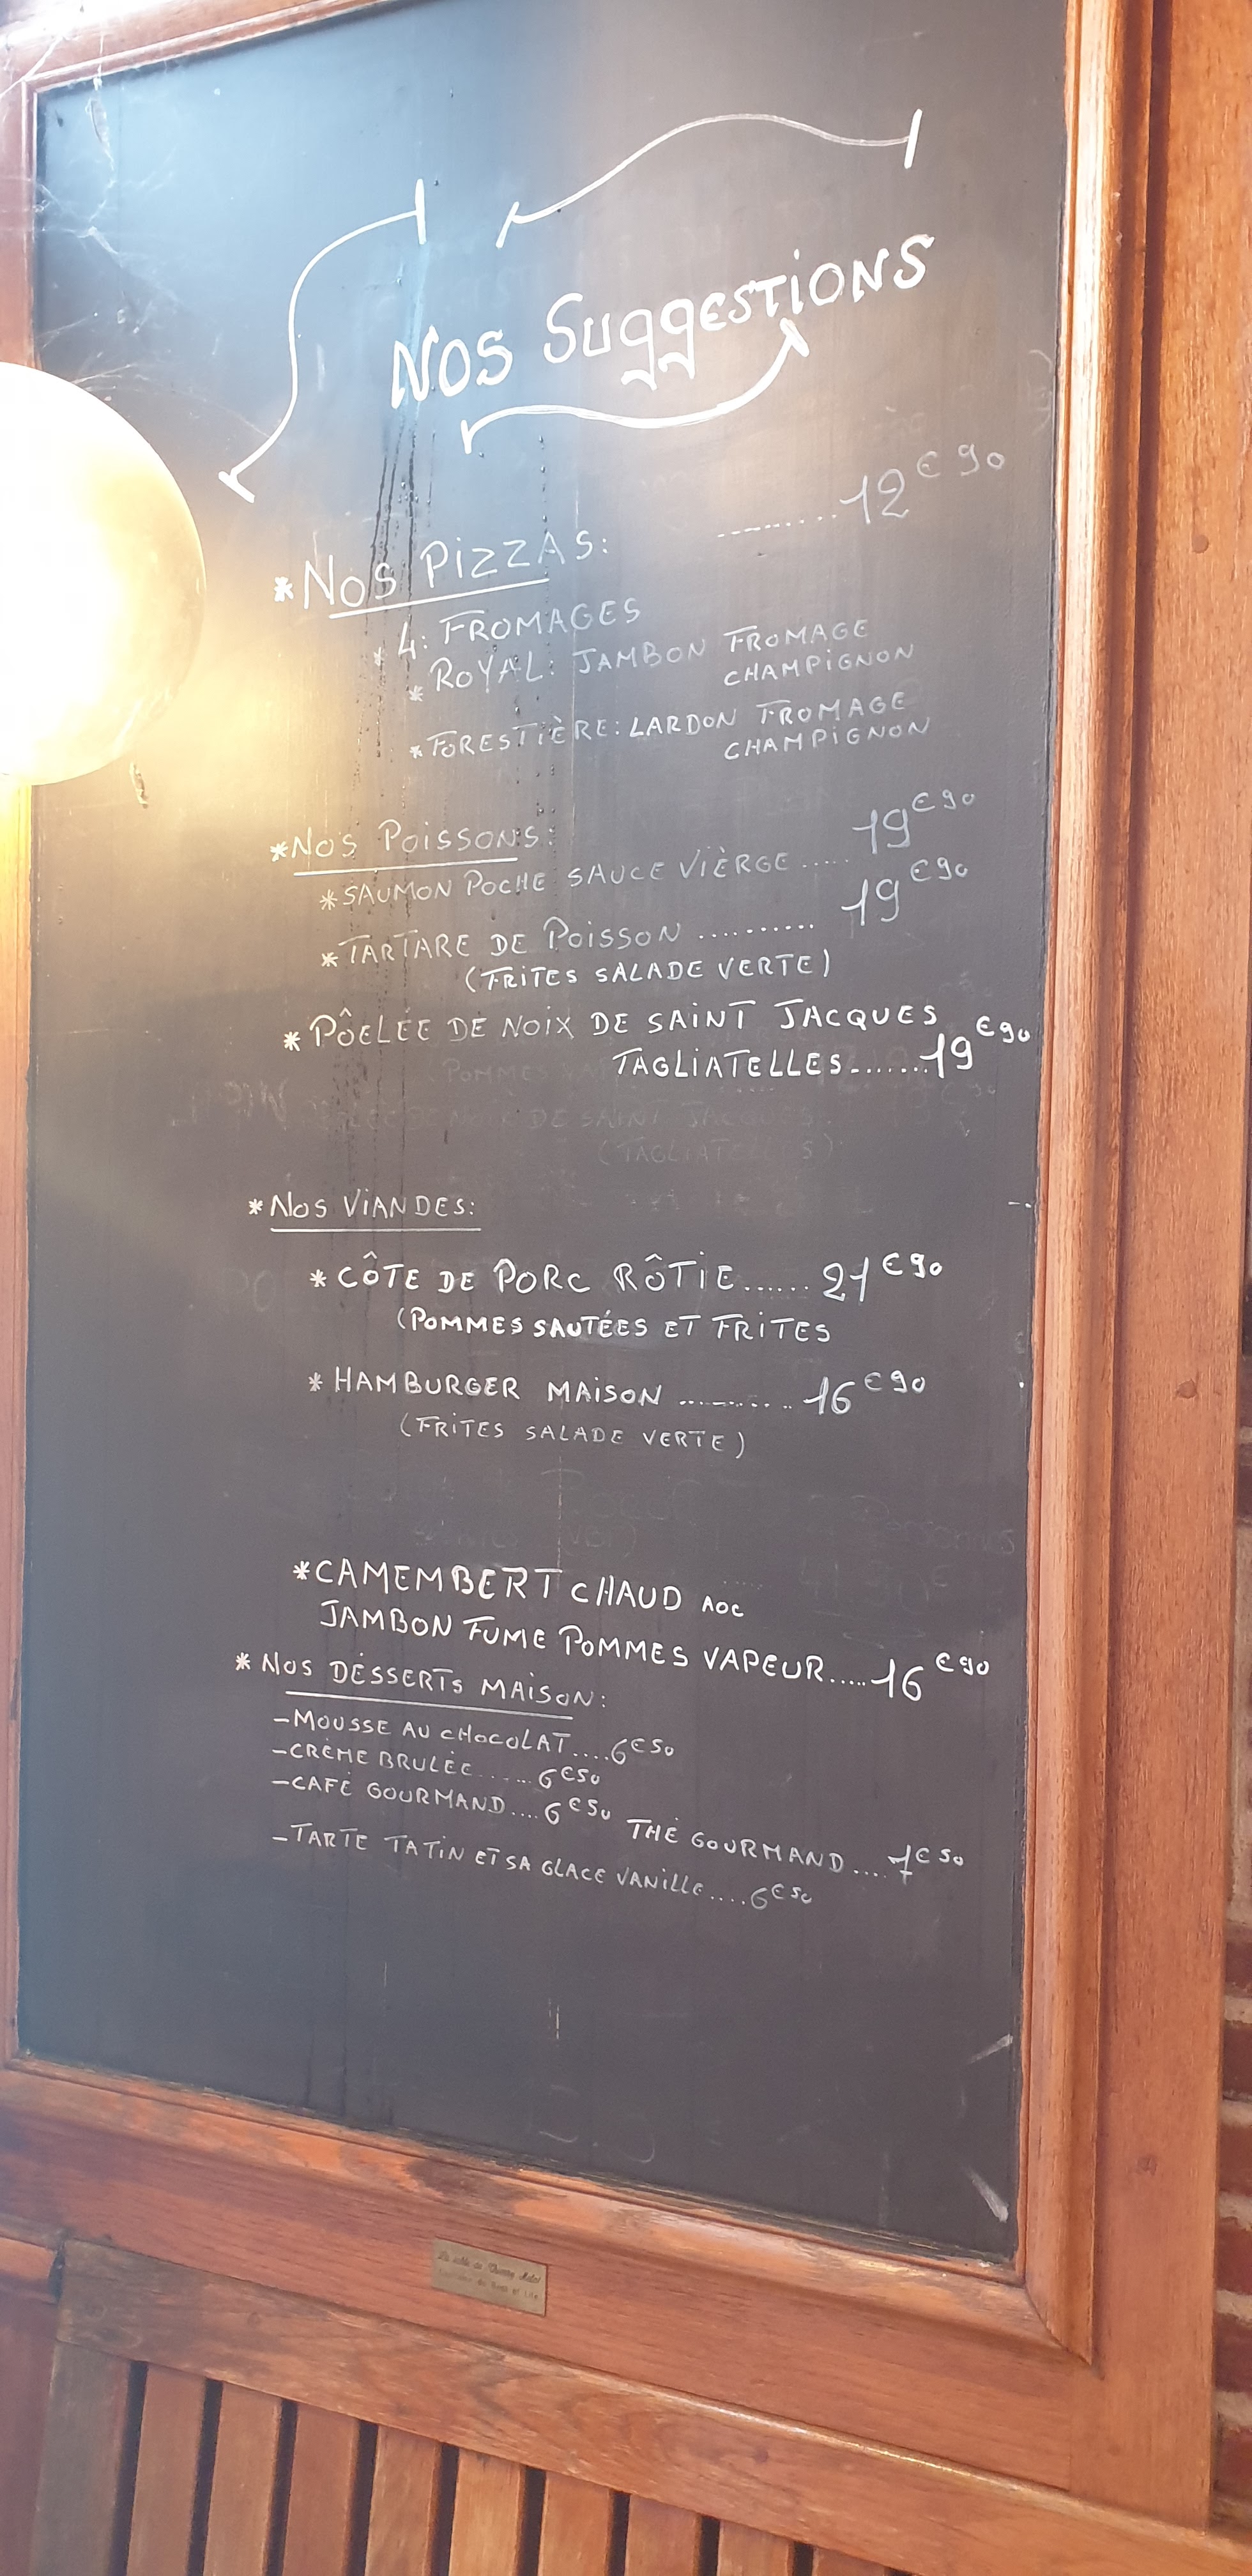 Nos Suggestions
*Nos Pizzas: .......... 12€90
* 4: FROMAGES
* ROYAL: JAMBON FROMAGE
CHAMPIGNON
* FORESTIÈRE: LARDON FROMAGE
CHAMPIGNON
*Nos Poissons:
*SAUMON POCHE SAUCE VIÈRGE ..... 19€90
*TARTARE DE POISSON .......... 19€90
(FRITES SALADE VERTE)
*PÔELÉE DE NOIX DE SAINT JACQUES
TAGLIATELLES.......19€90
DE SAINT JACQUES
*Nos VIANDES:
*CÔTE DE PORC RÔTIE...... 21€90
(POMMES SAUTÉES ET FRITES
*HAMBURGER MAISON .......... 16€90
(FRITES SALADE VERTE)
*CAMEMBERT CHAUD AOC
JAMBON FUME POMMES VAPEUR.....16€90
* Nos DÉSSERTS MAISON:
-MOUSSE AU CHOCOLAT....6€50
-CRÈME BRULÉE.......6€50
-CAFÉ GOURMAND....6€50 THÉ GOURMAND....7€50
-TARTE TATIN ET SA GLACE VANILLE....6€50